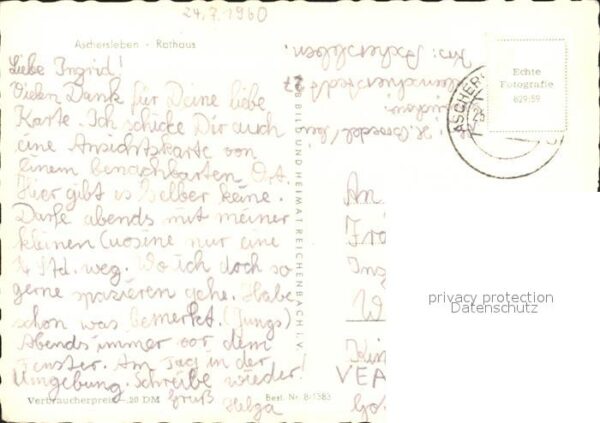 24.7.1960
Aschersleben - Rathaus
Liebe Ingrid!
Vielen Dank für Deine liebe
Karte. Ich schicke Dir auch
eine Ansichtskarte von
einem benachbarten Ort.
Hier gibt es selber keine.
Durfte abends mit meiner
kleinen Cuosine nur eine
½ Std. weg. Wo ich doch so
gerne spazieren gehe. Habe
schon was bemerkt. (Jungs)
Abends immer vor dem
Fenster. Am Tag in der
Umgebung. Schreibe wieder!
Gruß Helga
Verbraucherpreis -,20 DM
Best. Nr. 8/1383
BILD UND HEIMAT REICHENBACH I. V.
Krs. Aschersleben.
Echte
Fotografie
629/59
ASCHER
An
Frä
Ing
W
Kin
VEA
Go
privacy protection
Datenschutz